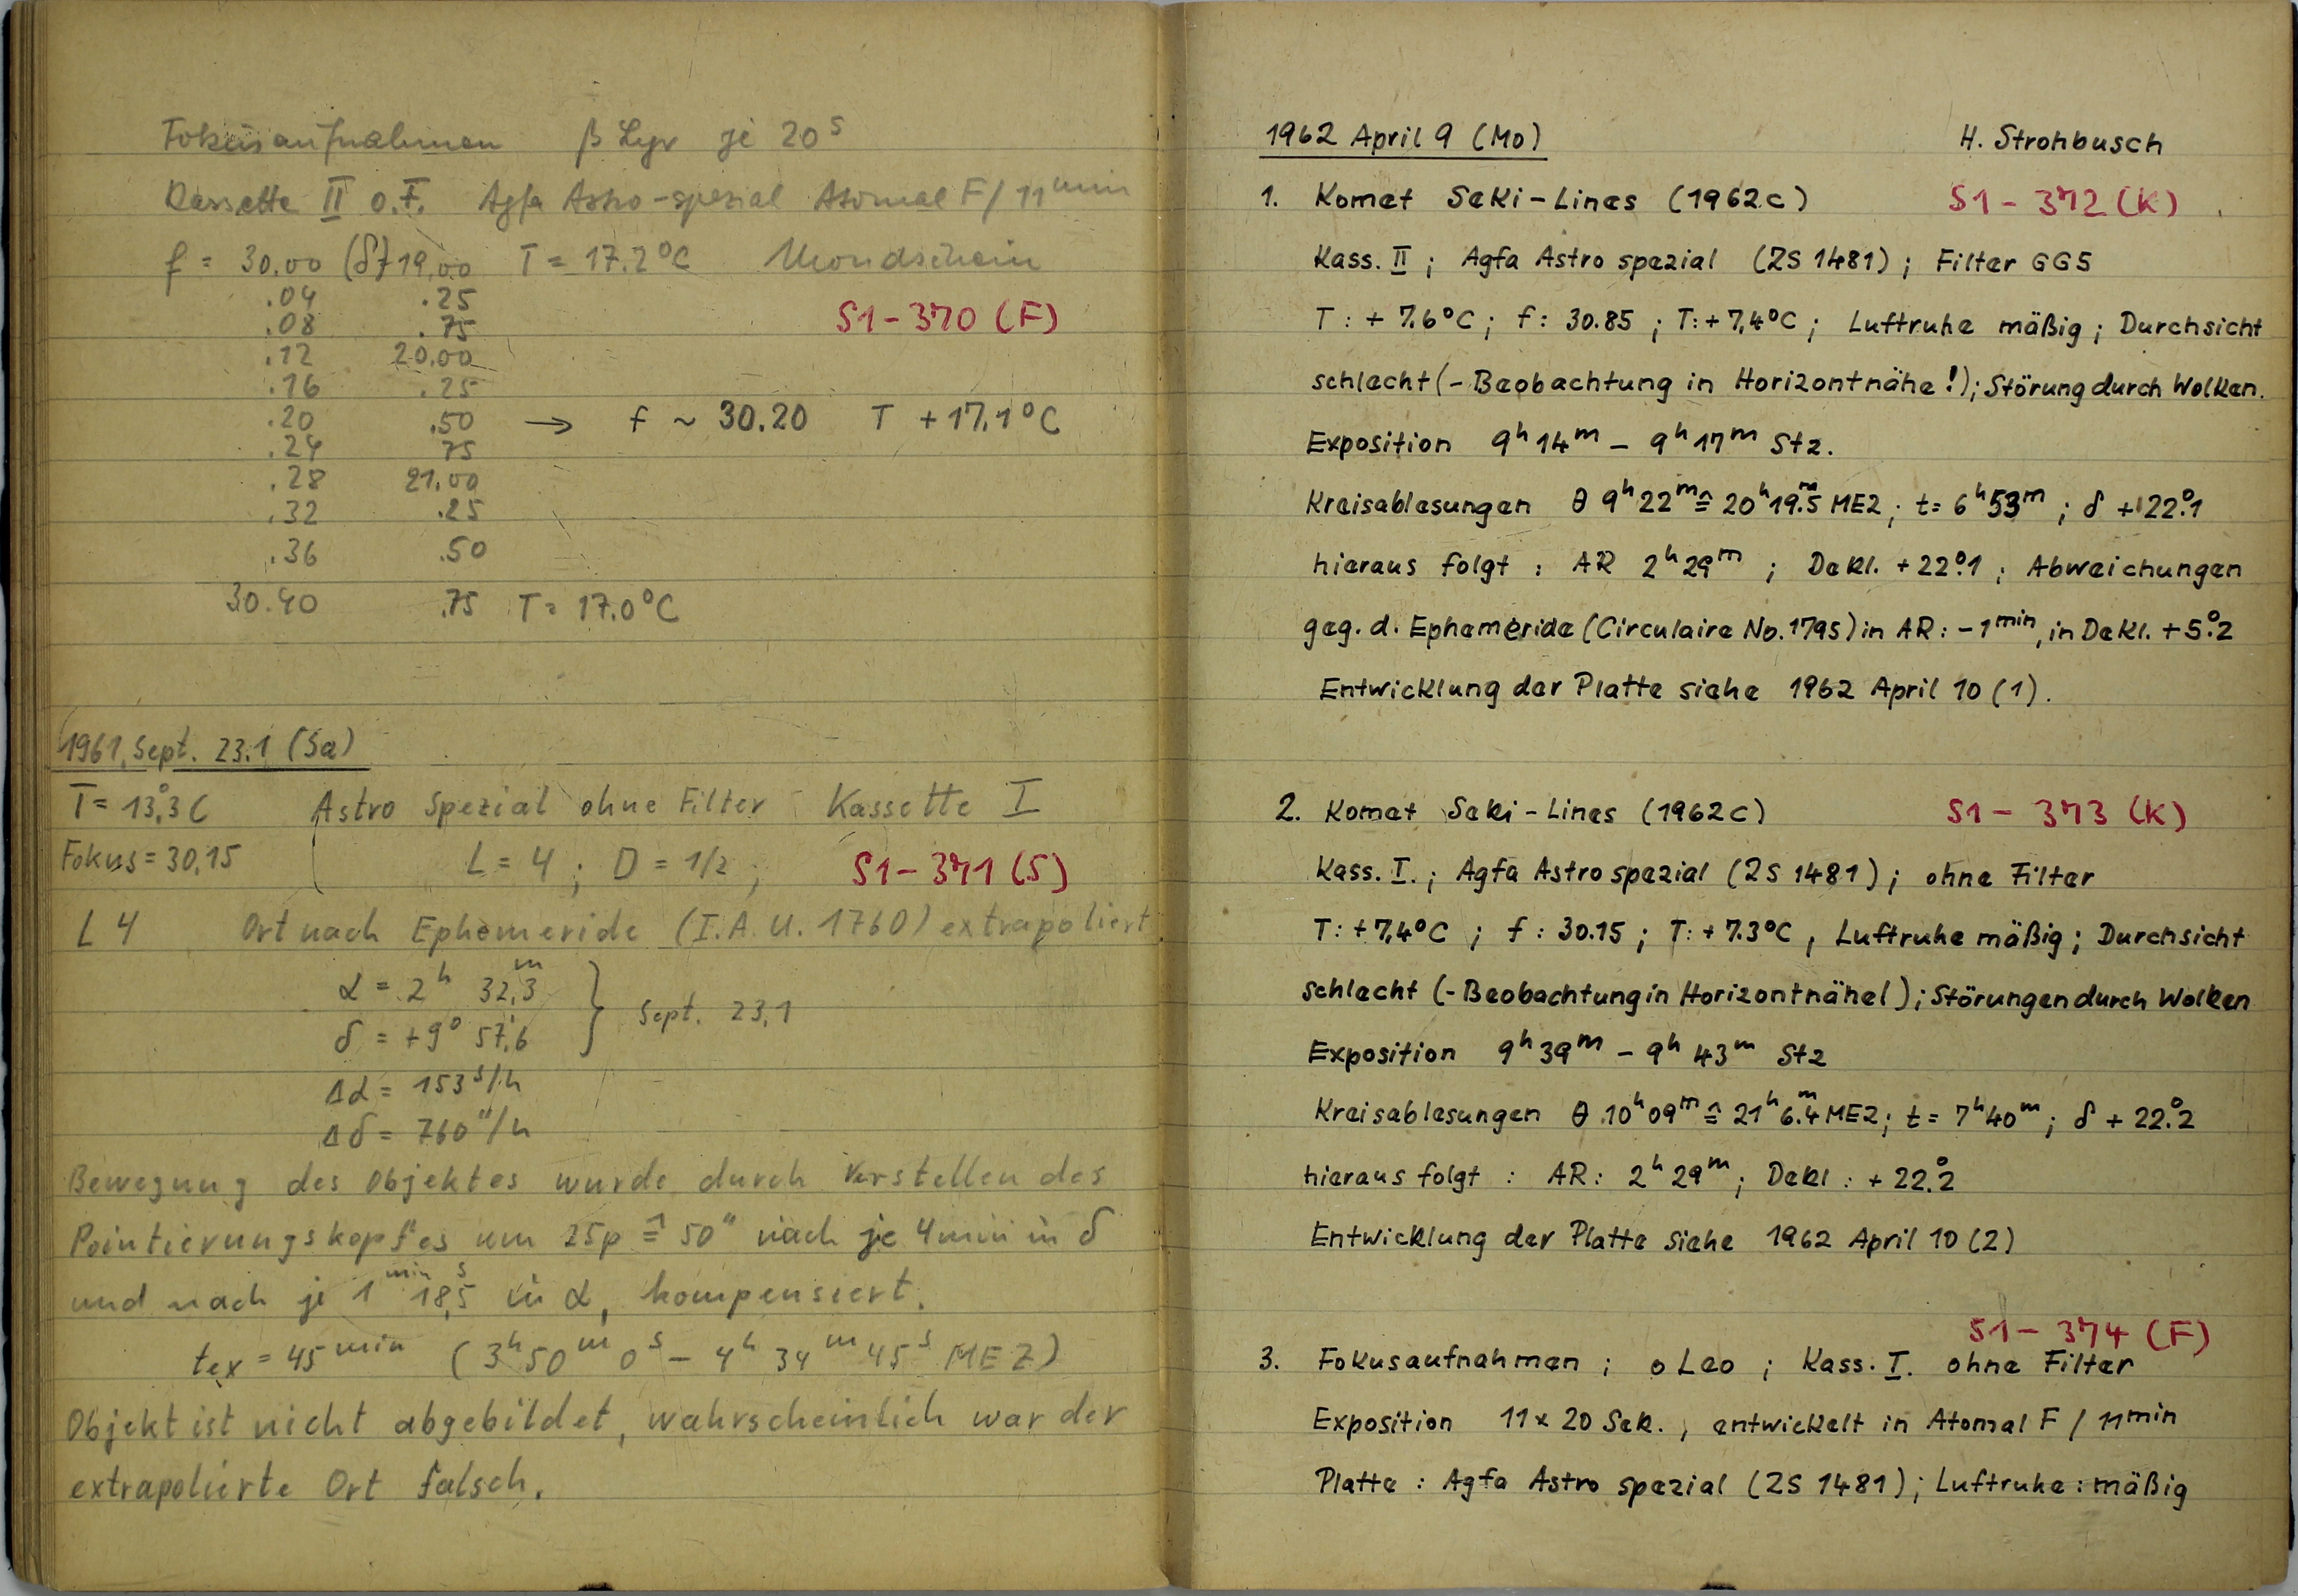 Fokusaufnahmen β Lyr je 20ˢ
Kassette II o.F. Agfa Astro-spezial Atomal F/11ᵐⁱⁿ
f = 30.00 (δ) 19.00 T = 17.2°C Mondschein
.04 .25
S1-370 (F)
.08 .75
.12 20.00
.16 .25
.20 .50 → f ~ 30.20 T +17.1°C
.24 75
.28 21.00
.32 .25
.36 .50
30.40 .75 T = 17.0°C
1961, Sept. 23.1 (Sa)
T = 13°,3 C Astro Spezial ohne Filter Kassette I
Fokus = 30,15 L = 4 ; D = 1/2 ; S1-371 (S)
L 4 Ort nach Ephemeride (I.A.U. 1760) extrapoliert
α = 2ʰ 32,ᵐ3
δ = +9° 57,'6 } Sept. 23,1
Δα = 153ˢ/h
Δδ = 760"/h
Bewegung des Objektes wurde durch Verstellen des
Pointierungskopfes um 25p ≙ 50" nach je 4min in δ
und nach je 1ᵐⁱⁿ 18,ˢ5 in α, kompensiert.
tex = 45ᵐⁱⁿ (3ʰ50ᵐ0ˢ – 4ʰ34ᵐ45ˢ MEZ)
Objekt ist nicht abgebildet, wahrscheinlich war der
extrapolierte Ort falsch.
1962 April 9 (Mo) H. Strohbusch
1. Komet Seki-Lines (1962c) S1-372 (K)
Kass. II ; Agfa Astro spezial (ZS 1481) ; Filter GG5
T : + 7.6°C ; f : 30.85 ; T : + 7,4°C ; Luftruhe mäßig ; Durchsicht
schlecht (- Beobachtung in Horizontnähe !) ; Störung durch Wolken.
Exposition 9ʰ14ᵐ – 9ʰ17ᵐ Stz.
Kreisablesungen θ 9ʰ22ᵐ ≙ 20ʰ19.ᵐ5 MEZ ; t = 6ʰ53ᵐ ; δ + 22.°1
hieraus folgt : AR 2ʰ29ᵐ ; Dekl. + 22.°1 ; Abweichungen
geg. d. Ephemeride (Circulaire No. 1795) in AR : -1ᵐⁱⁿ, in Dekl. + 5.°2
Entwicklung der Platte siehe 1962 April 10 (1).
2. Komet Seki-Lines (1962c) S1-373 (K)
Kass. I. ; Agfa Astro spezial (ZS 1481) ; ohne Filter
T : + 7,4°C ; f : 30.15 ; T : + 7.3°C , Luftruhe mäßig ; Durchsicht
schlecht (- Beobachtung in Horizontnähe!) ; Störungen durch Wolken
Exposition 9ʰ39ᵐ – 9ʰ43ᵐ Stz
Kreisablesungen θ 10ʰ09ᵐ ≙ 21ʰ6.ᵐ4 MEZ ; t = 7ʰ40ᵐ ; δ + 22.°2
hieraus folgt : AR : 2ʰ29ᵐ ; Dekl : + 22.°2
Entwicklung der Platte siehe 1962 April 10 (2)
S1-374 (F)
3. Fokusaufnahmen ; o Leo ; Kass. I. ohne Filter
Exposition 11 x 20 Sek. , entwickelt in Atomal F / 11ᵐⁱⁿ
Platte : Agfa Astro spezial (ZS 1481) ; Luftruhe : mäßig